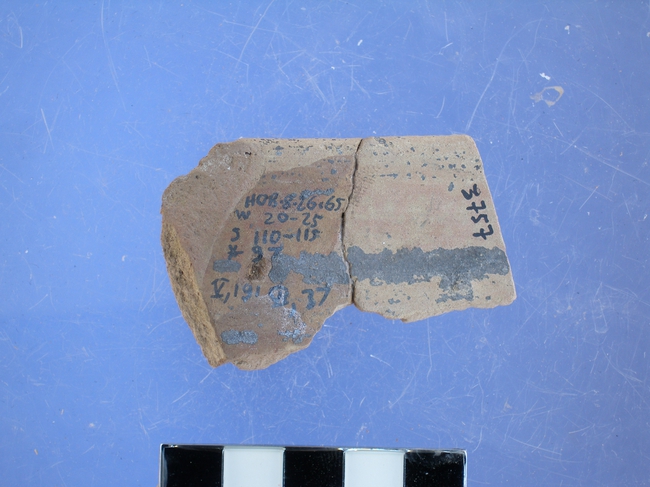 HOB-8-26-65
W 20-25
S 110-115
* 97
3757